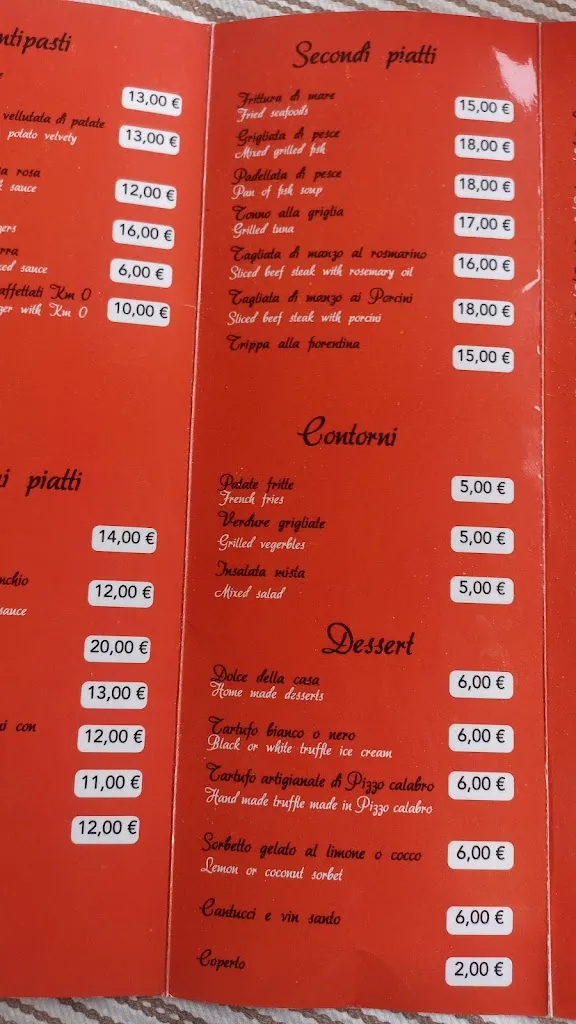 ntipasti
13,00 €
vellutata di patate
potato velvety
13,00 €
a rosa
sauce
12,00 €
16,00 €
6,00 €
affettati Km 0
with Km 0
10,00 €
i piatti
14,00 €
nchio
12,00 €
sauce
20,00 €
13,00 €
i con
12,00 €
11,00 €
12,00 €
Secondi piatti
Frittura di mare
15,00 €
Fried seafoods
Grigliata di pesce
18,00 €
Mixed grilled fish
Padellata di pesce
18,00 €
Pan of fish soup
Tonno alla griglia
17,00 €
Grilled tuna
Tagliata di manzo al rosmarino
16,00 €
Sliced beef steak with rosemary oil
Tagliata di manzo ai Porcini
18,00 €
Sliced beef steak with porcini
Trippa alla fiorentina
15,00 €
Contorni
Patate fritte
5,00 €
French fries
Verdure grigliate
5,00 €
Grilled vegerbles
Insalata mista
5,00 €
Mixed salad
Dessert
Dolce della casa
6,00 €
Home made desserts
Tartufo bianco o nero
6,00 €
Black or white truffle ice cream
Tartufo artigianale di Pizzo calabro
6,00 €
Hand made truffle made in Pizzo calabro
Sorbetto gelato al limone o cocco
6,00 €
Lemon or coconut sorbet
Cantucci e vin santo
6,00 €
Coperto
2,00 €